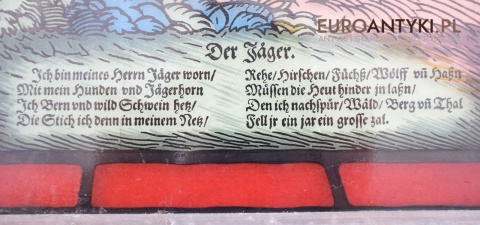 EUROANTYKI.PL
Der Jäger.
Ich bin meines Herrn Jäger worn/
Mit mein Hunden vnd Jägerhorn
Ich Bern vnd wild Schwein hetz/
Die Stich ich denn in meinem Netz/
Rehe/Hirschen/Füchß/Wölff vñ Haßn
Müssen die Heut hinder jn laßn/
Den ich nachspür/Wäld/Berg vñ Thal
Fell jr ein jar ein grosse zal.